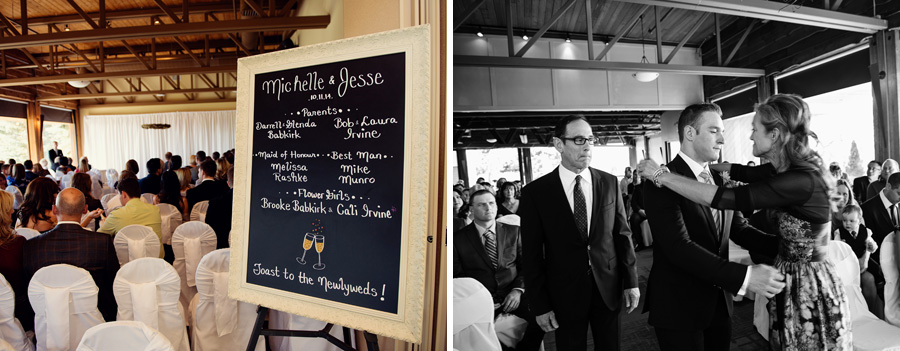 Michelle & Jesse
10.11.14.
Parents
Darrell & Glenda
Babkirk
Bob & Laura
Irvine
Maid of Honour
Melissa
Rashke
Best Man
Mike
Munro
Flower Girls
Brooke Babkirk & Cali Irvine
Toast to the Newlyweds!